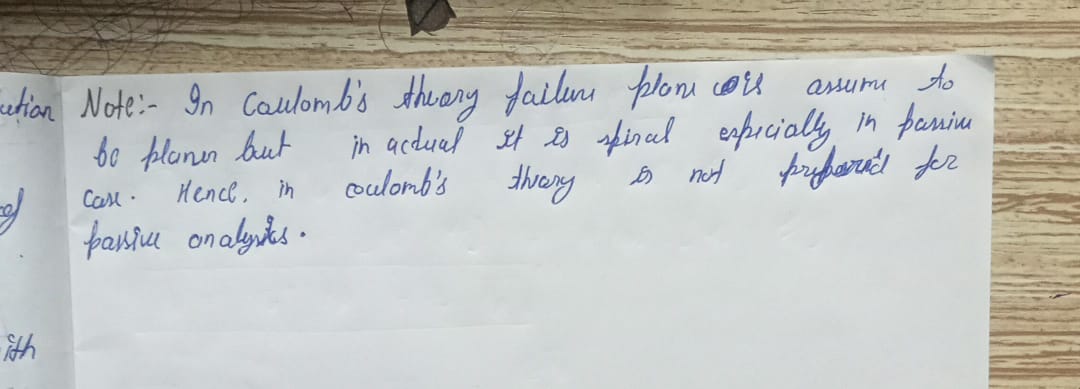 Note:- In Coulomb's theory failure plane is assume to
ution
be planer but in actual it is spiral especially in passive
case. Hence, in coulomb's theory is not preferred for
of
passive analysis.
ith